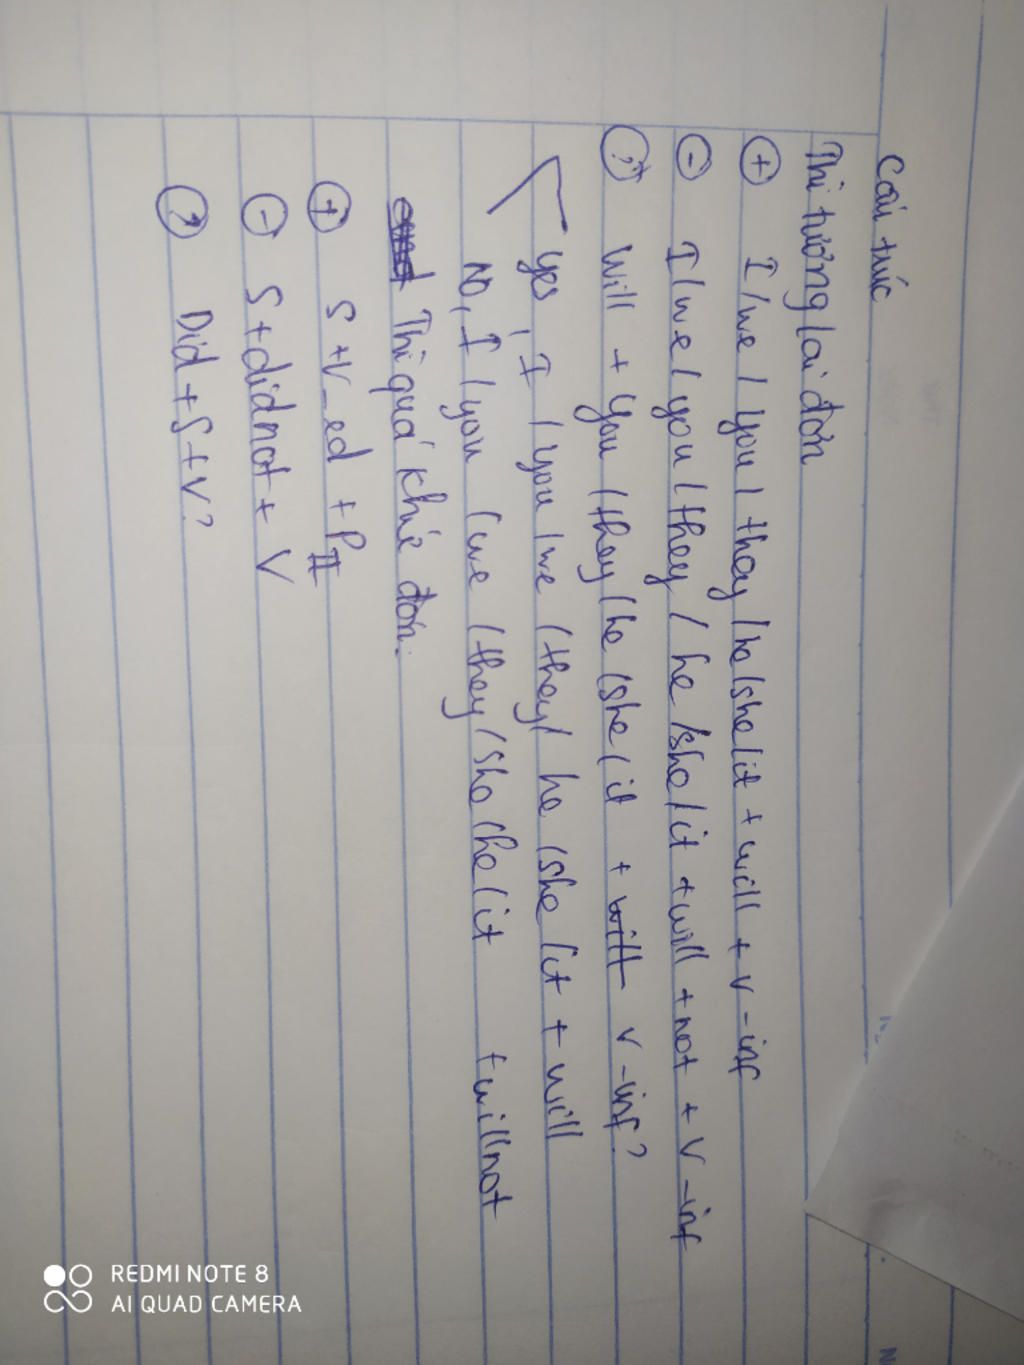 Cấu trúc
Thì tương lai đơn
+ I / we / you / they / he / she / it + will + v - inf
- I / we / you / they / he / she / it + will + not + v - inf
? Will + you / they / he / she / it + will v - inf?
Yes, I / you / we / they / he / she / it + will
No, I / you / we / they / she / he / it + will not
Thì quá khứ đơn:
+ S + V_ed + PII
- S + did not + V
? Did + S + V?
REDMI NOTE 8
AI QUAD CAMERA